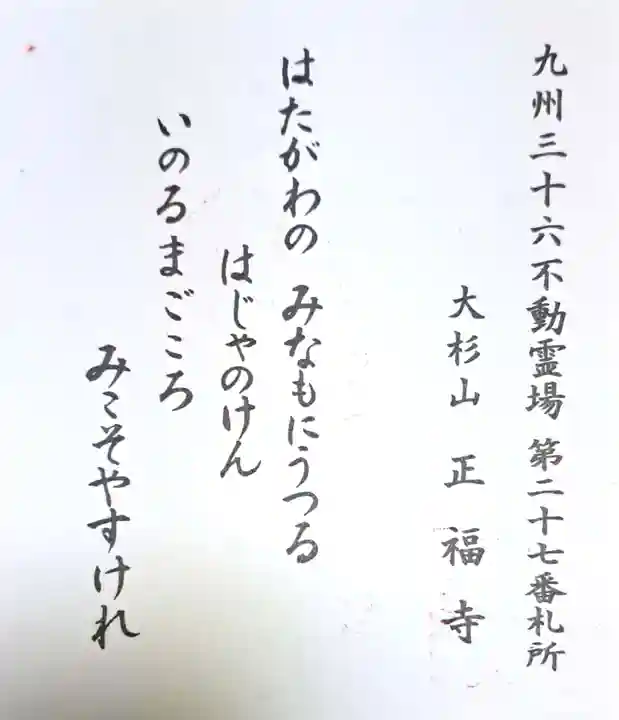 九州三十六不動霊場 第二十七番札所
大杉山 正福寺
はたがわの みなもにうつる
はじゃのけん
いのるまごころ
みこそやすけれ